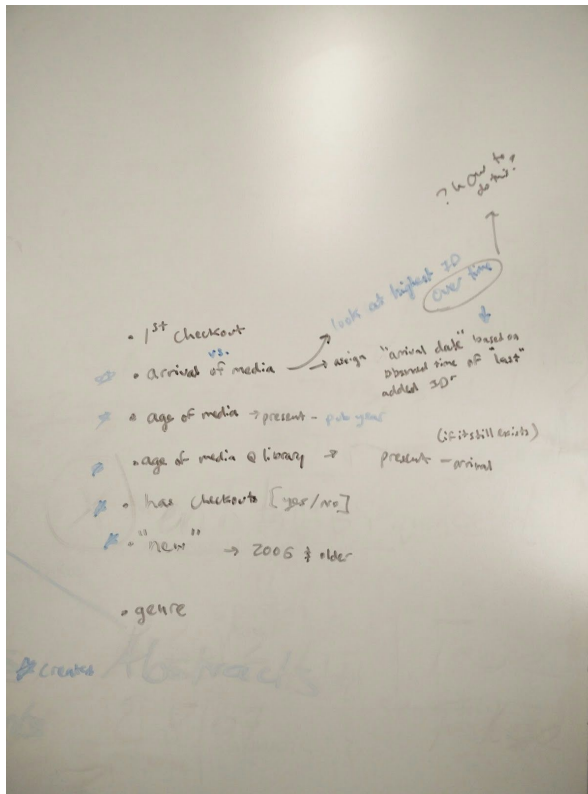 ? How to
do this?
look at highest ID
over time
• 1st checkout
vs.
• arrival of media → assign "arrival date" based on
observed time of "last"
added ID
• age of media → present - pub year
(if it still exists)
• age of media @ library → present - arrival
• has checkouts [yes/no]
• "new" → 2006 & older
• genre
created
Abstracts